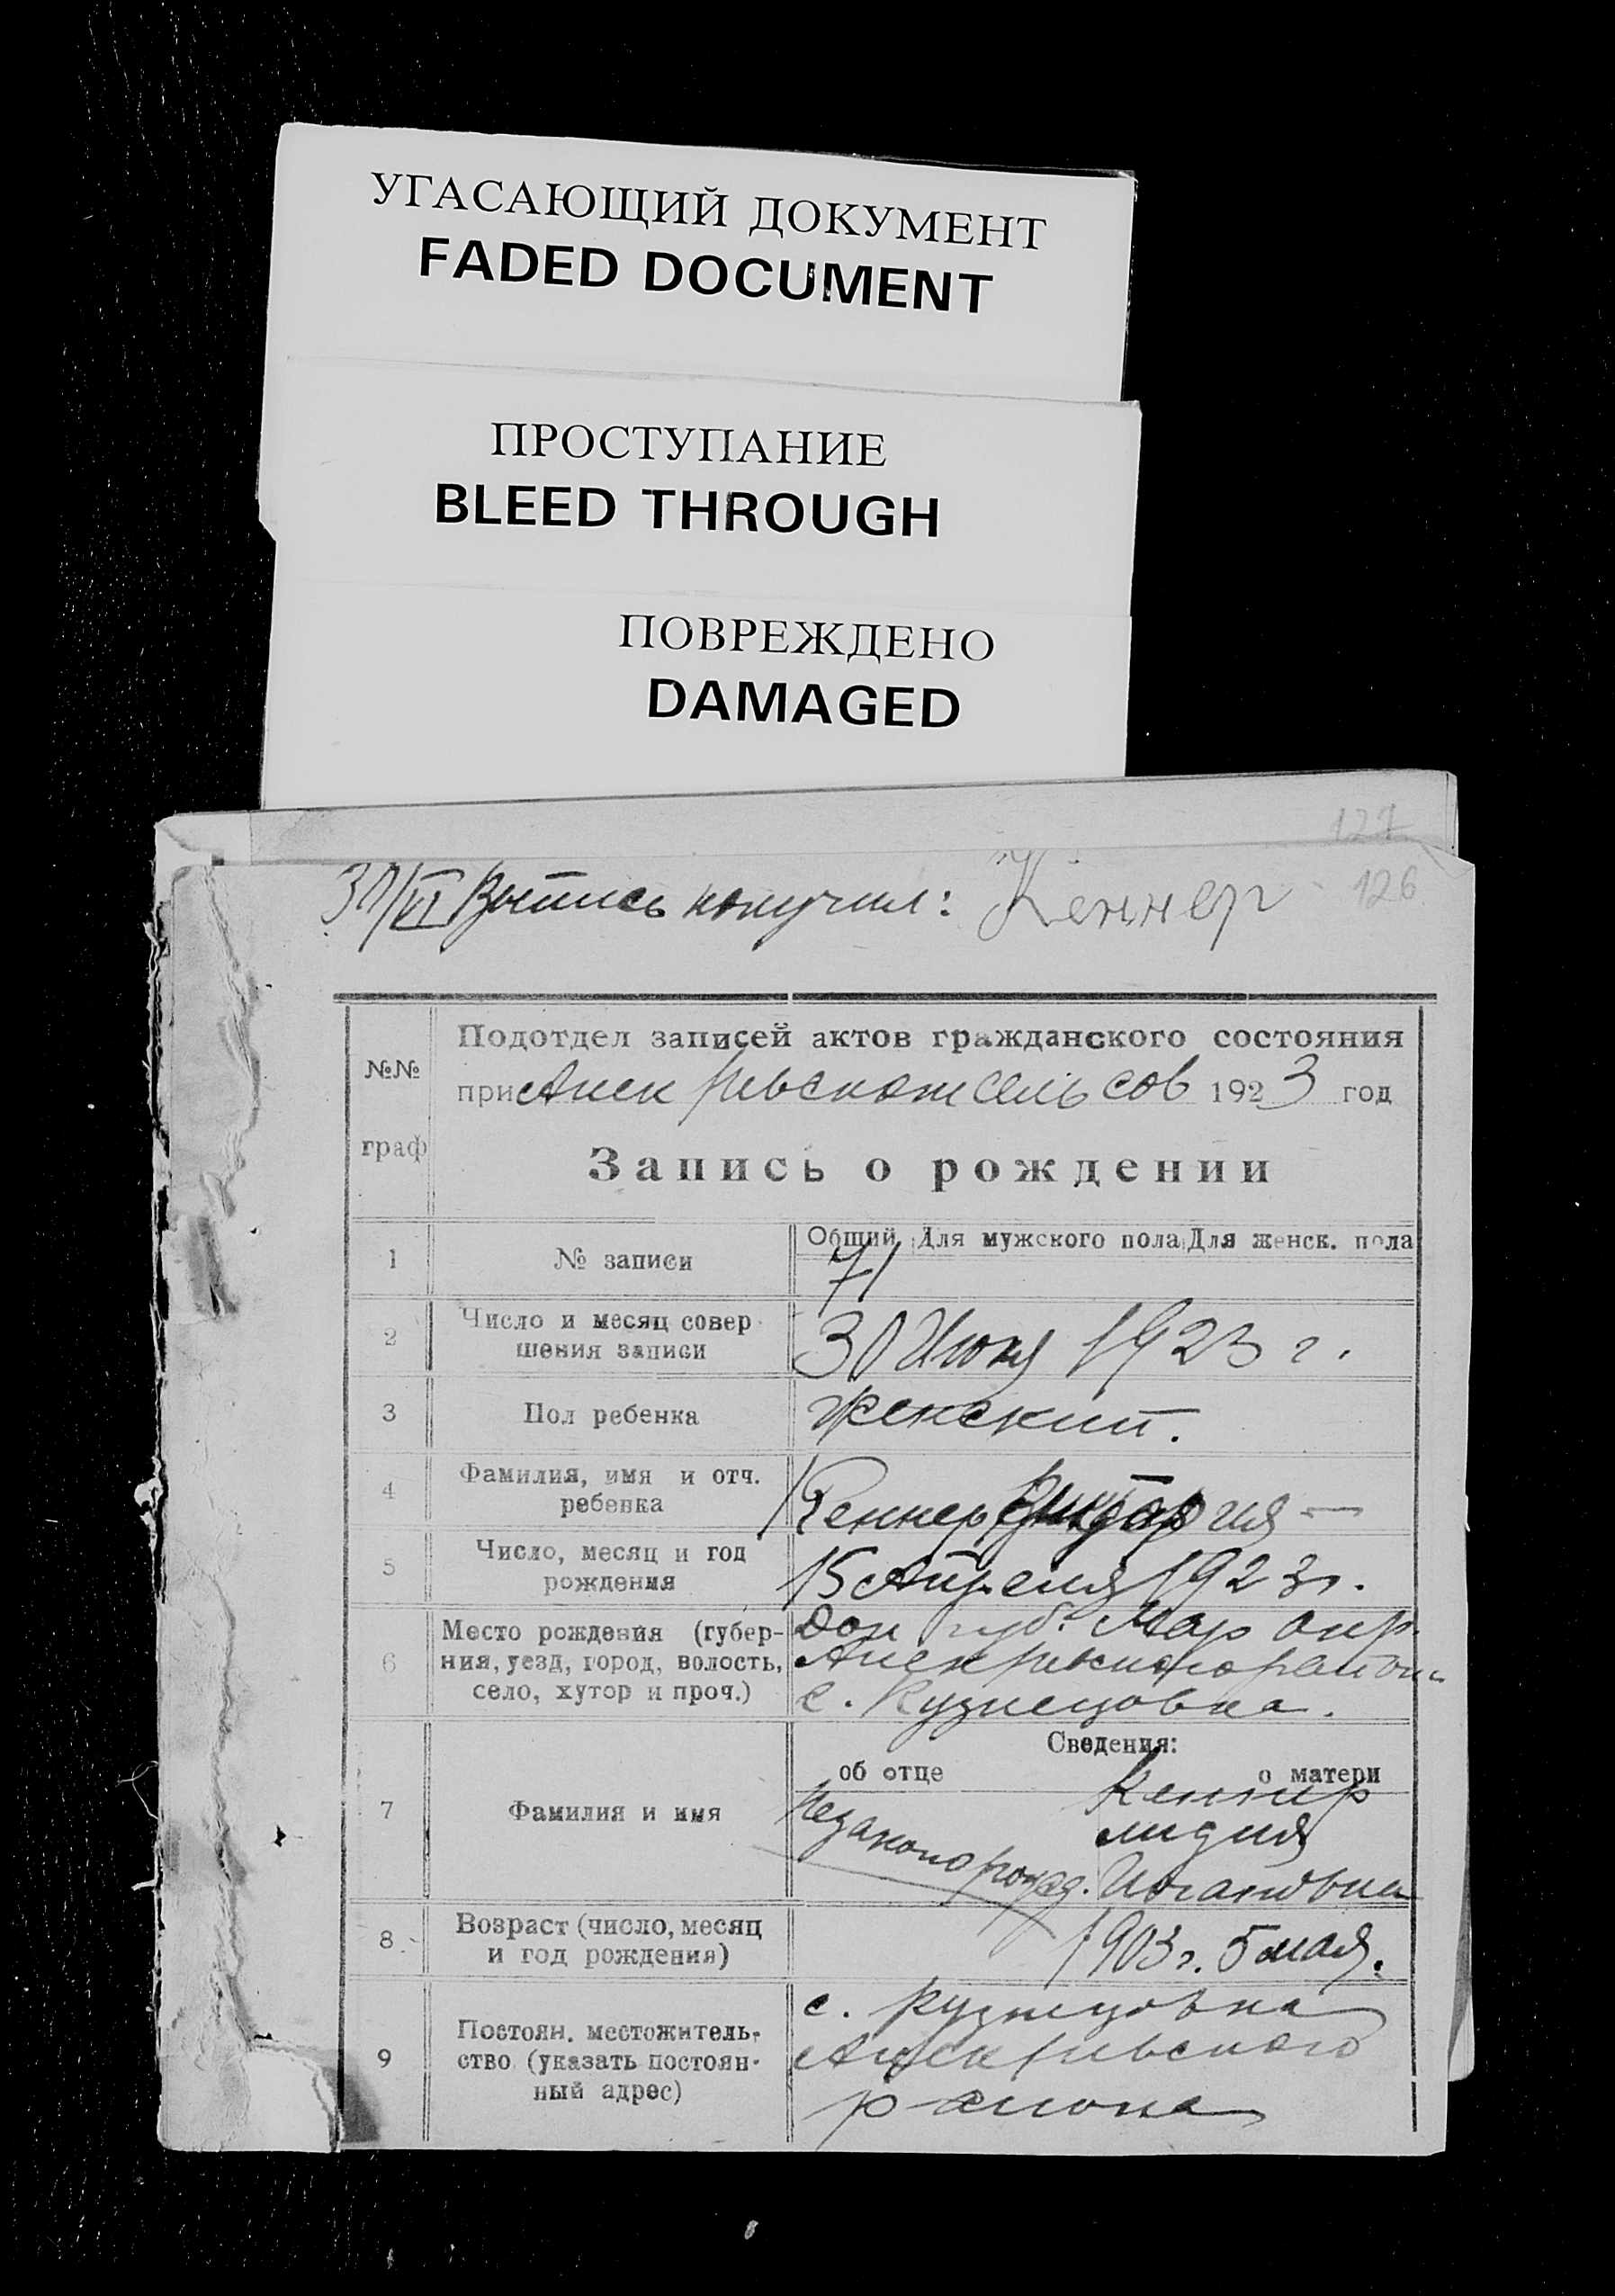 УГАСАЮЩИЙ ДОКУМЕНТ
FADED DOCUMENT
ПРОСТУПАНИЕ
BLEED THROUGH
ПОВРЕЖДЕНО
DAMAGED
127
30/VI Выпись получил: Кеннер 126
№№ граф
Подотдел записей актов гражданского состояния
при сельсов 1923 год
Запись о рождении
Общий Для мужского пола Для женск. пола
1 № записи 71
2 Число и месяц совер
шения записи
30 Июня 1923 г.
3 Пол ребенка женский.
4 Фамилия, имя и отч.
ребенка
Кеннер Виктория —
5 Число, месяц и год
рождения
15 Апреля 1923 г.
6 Место рождения (губер-
ния, уезд, город, волость,
село, хутор и проч.)
Дон губ. Мар окр.
с. Кузнецовка.
Сведения:
об отце о матери
7 Фамилия и имя
Незаконорожд.
Кеннер
Лидия
Иогановна
8 Возраст (число, месяц
и год рождения)
1903 г. 5 мая.
9 Постоян. местожитель-
ство (указать постоян-
ный адрес)
с. Кузнецовка
района